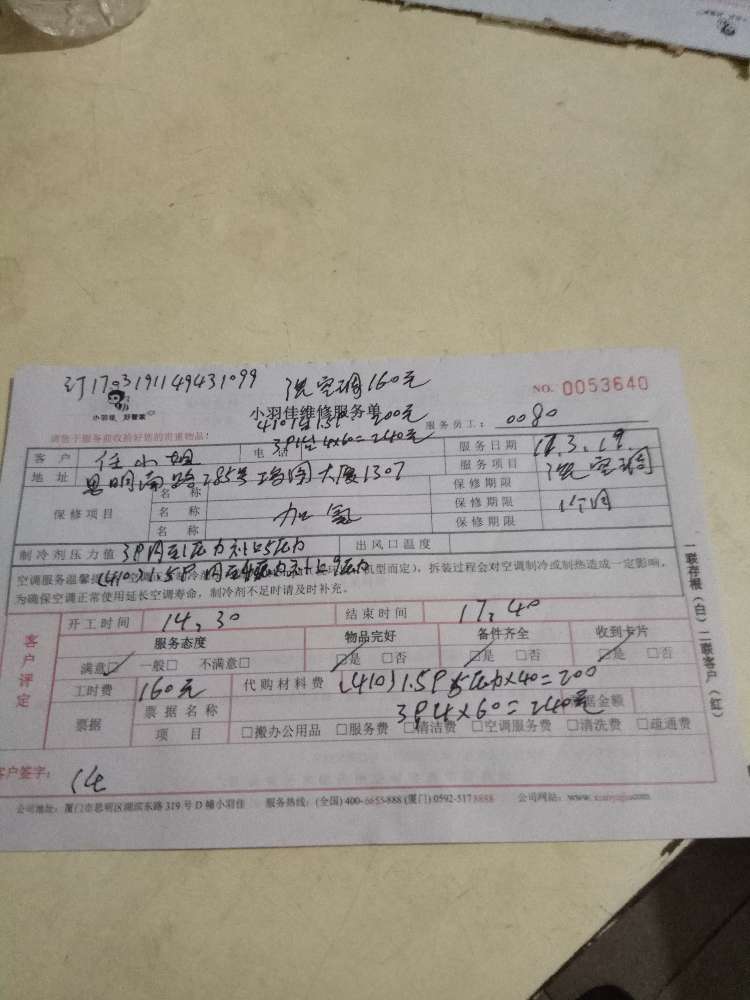 订1703191149431099 洗空调160元
小羽佳 好管家
NO. 0053640
小羽佳维修服务单
410 1.5P 200元
服务员工： 0080
请您于服务前收拾好您的贵重物品！
3P 4x60=240元
客 户 任小姐 电 话 服务日期 17.3.19
地 址 思明南路285号 大厦1307 服务项目 洗空调
保修项目
名 称 保修期限
名 称 加氟 保修期限 1个月
名 称 保修期限
制冷剂压力值 出风口温度
空调服务温馨提 机型而定），拆装过程会对空调制冷或制热造成一定影响，
为确保空调正常使用延长空调寿命，制冷剂不足时请及时补充。
开工时间 14.30 结束时间 17.40
客户评定
服务态度 物品完好 备件齐全 收到卡片
满意□ 一般□ 不满意□ □是 □否 □是 □否 □是 □否
工时费 160元 代购材料费 (410) 1.5P 5压力x40=200
票据 票据名称 3P 4x60=240元 票据金额
项 目 □搬办公用品 □服务费 □清洁费 □空调服务费 □清洗费 □疏通费
客户签字：
公司地址：厦门市思明区湖滨东路 319 号 D 幢小羽佳 服务热线：(全国) 400-6655-888 (厦门) 0592-5178888 公司网站：www.xiaoyujia.com
一联存根（白）二联客户（红）